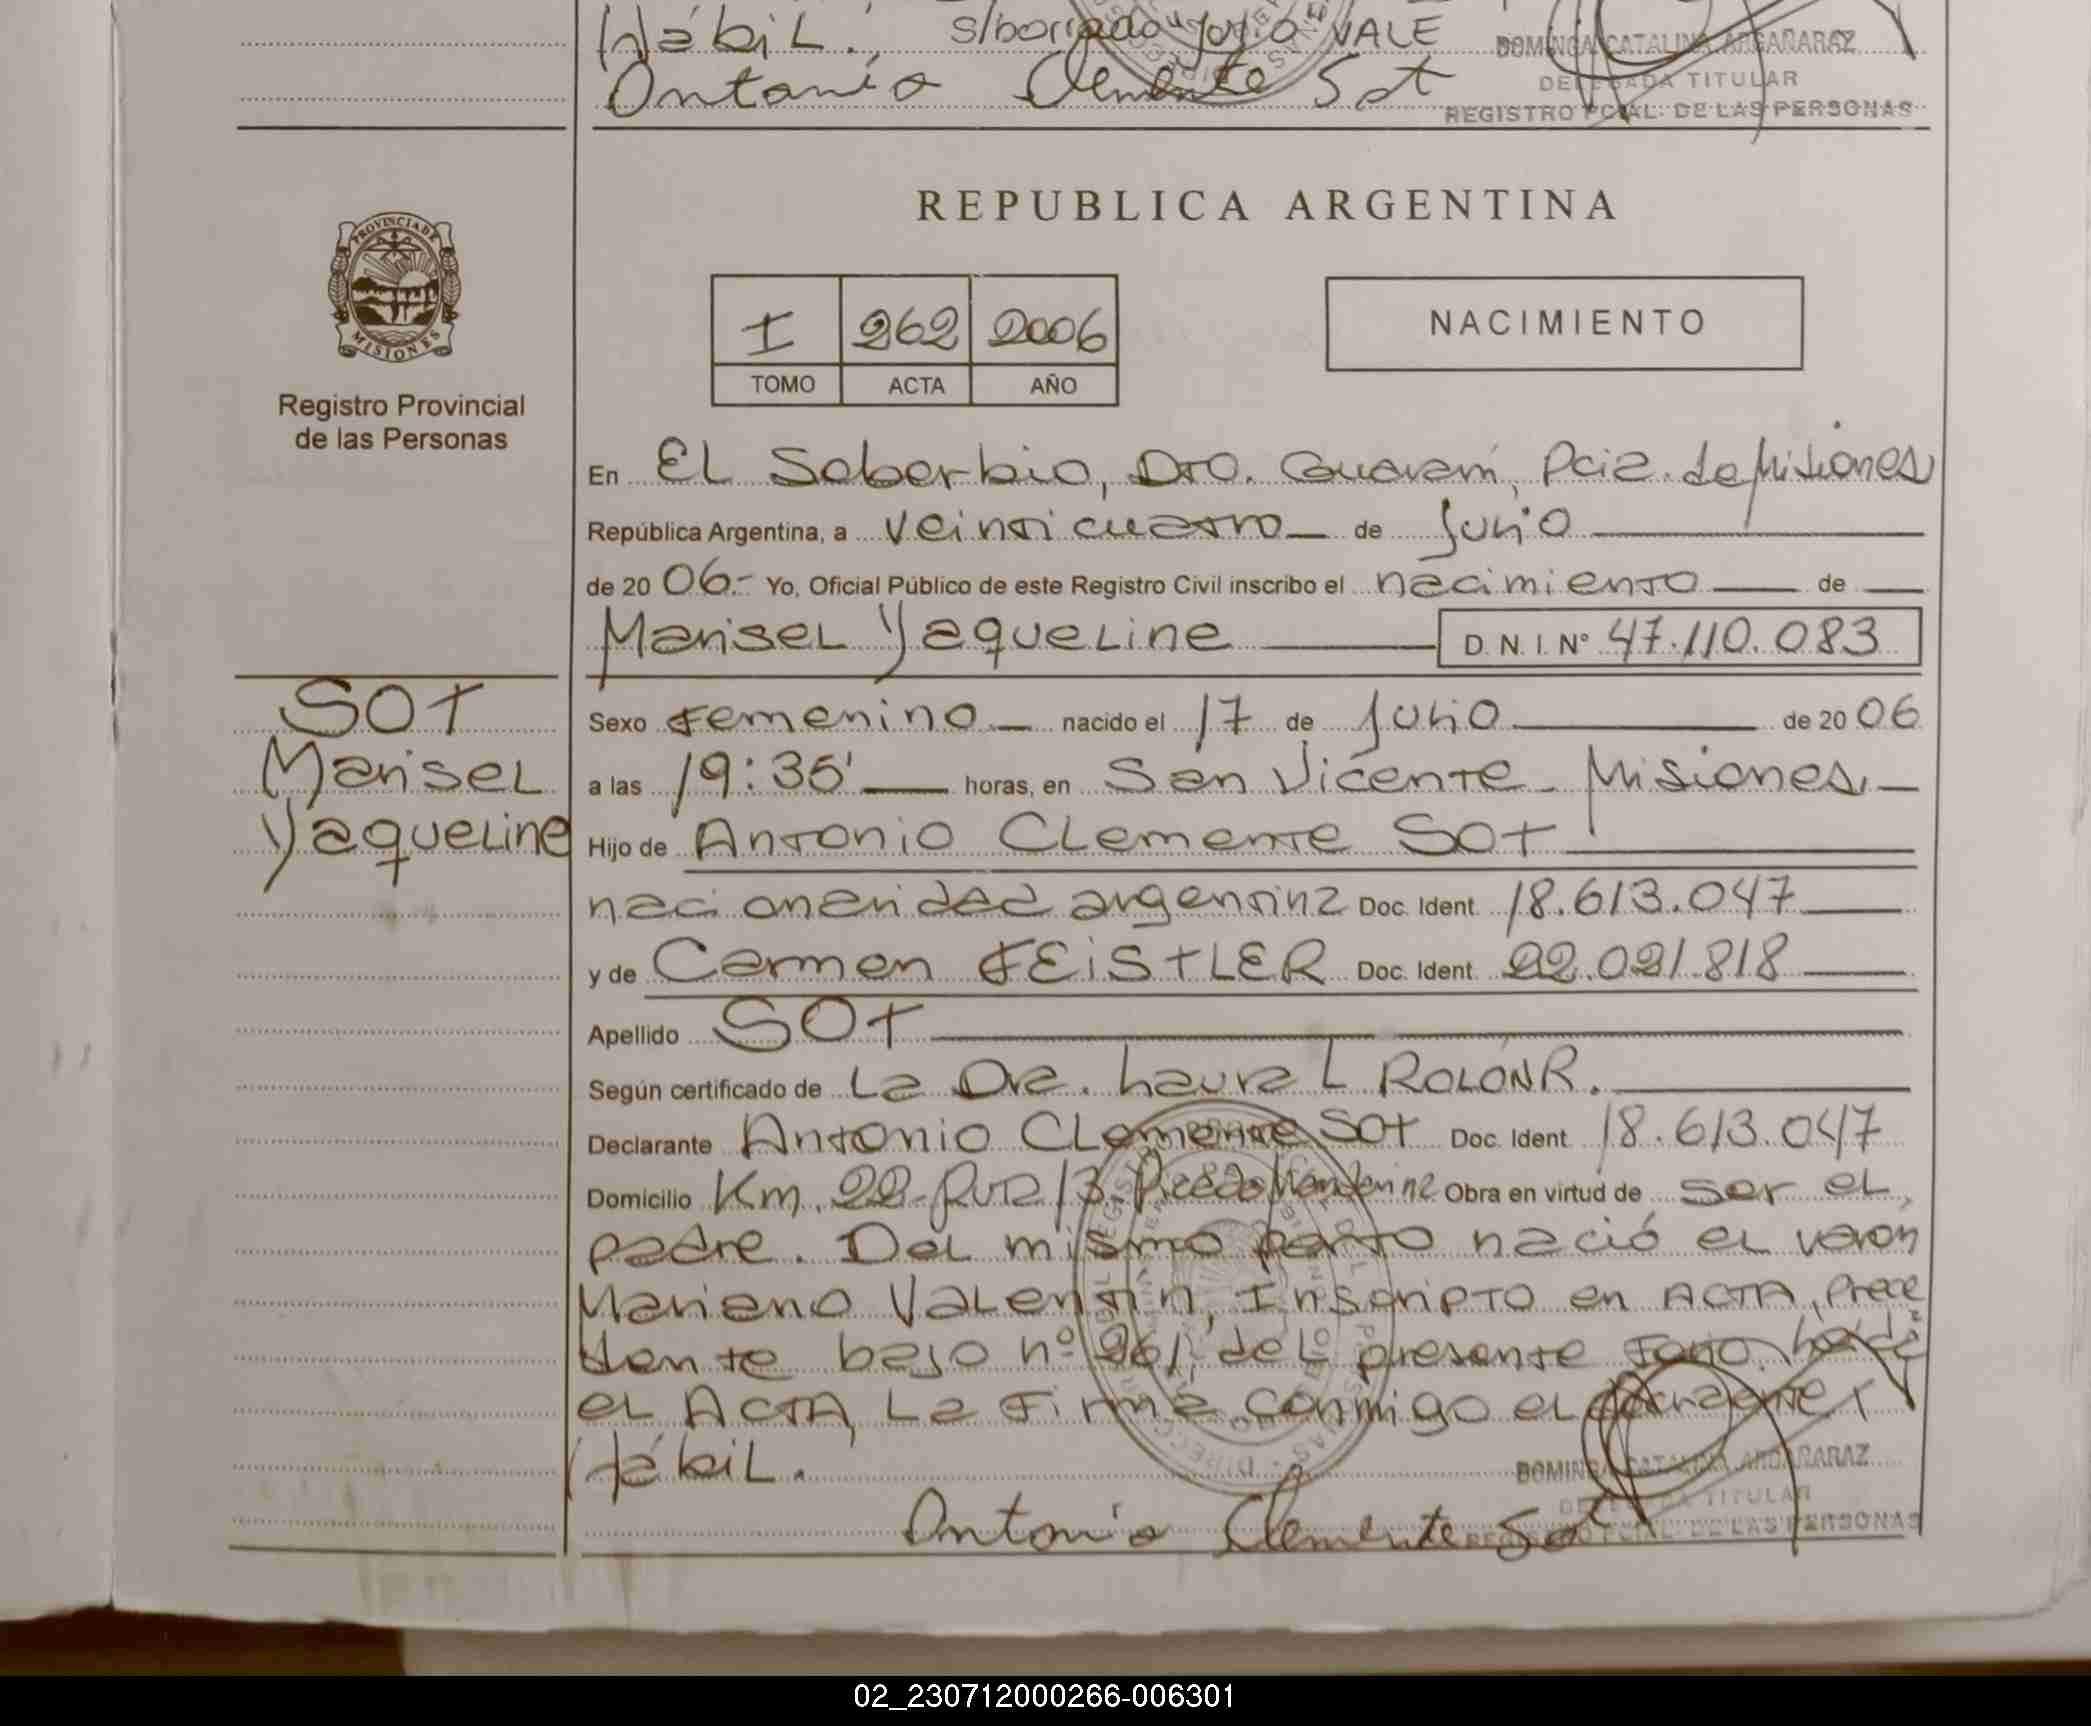 Hábil. s/borrado "Julio" VALE
Antonio Clemente Sot
DOMINGA CATALINA ARGAÑARAZ
DELEGADA TITULAR
REGISTRO PCIAL. DE LAS PERSONAS
REPUBLICA ARGENTINA
PROVINCIA DE
MISIONES
Registro Provincial
de las Personas
I 262 2006
TOMO ACTA AÑO
NACIMIENTO
En El Soberbio, Dto. Guaraní, Pcia. de Misiones
República Argentina, a veinticuatro de Julio
de 20 06.- Yo, Oficial Público de este Registro Civil inscribo el nacimiento de
Marisel Yaqueline D. N. I. Nº 47.110.083
SOT
Marisel
Yaqueline
Sexo Femenino nacido el 17 de Julio de 20 06
a las 19:35' horas, en San Vicente - Misiones.
Hijo de Antonio Clemente SOT
nacionalidad argentina Doc. Ident. 18.613.047
y de Carmen FEISTLER Doc. Ident. 22.021.818
Apellido SOT
Según certificado de La Dra. Laura L ROLON R.
Declarante Antonio Clemente SOT Doc. Ident. 18.613.047
Domicilio Km. 22 Ruta 13 Obra en virtud de ser el
padre. Del mismo parto nació el varon
Mariano Valentín, Inscripto en ACTA, Prece
dente bajo nº 261, del presente Tomo. Leída
el ACTA, La Firma conmigo el
Hábil.
DOMINGA CATALINA ARGAÑARAZ
DELEGADA TITULAR
REGISTRO PCIAL. DE LAS PERSONAS
Antonio Clemente Sot
02_230712000266-006301